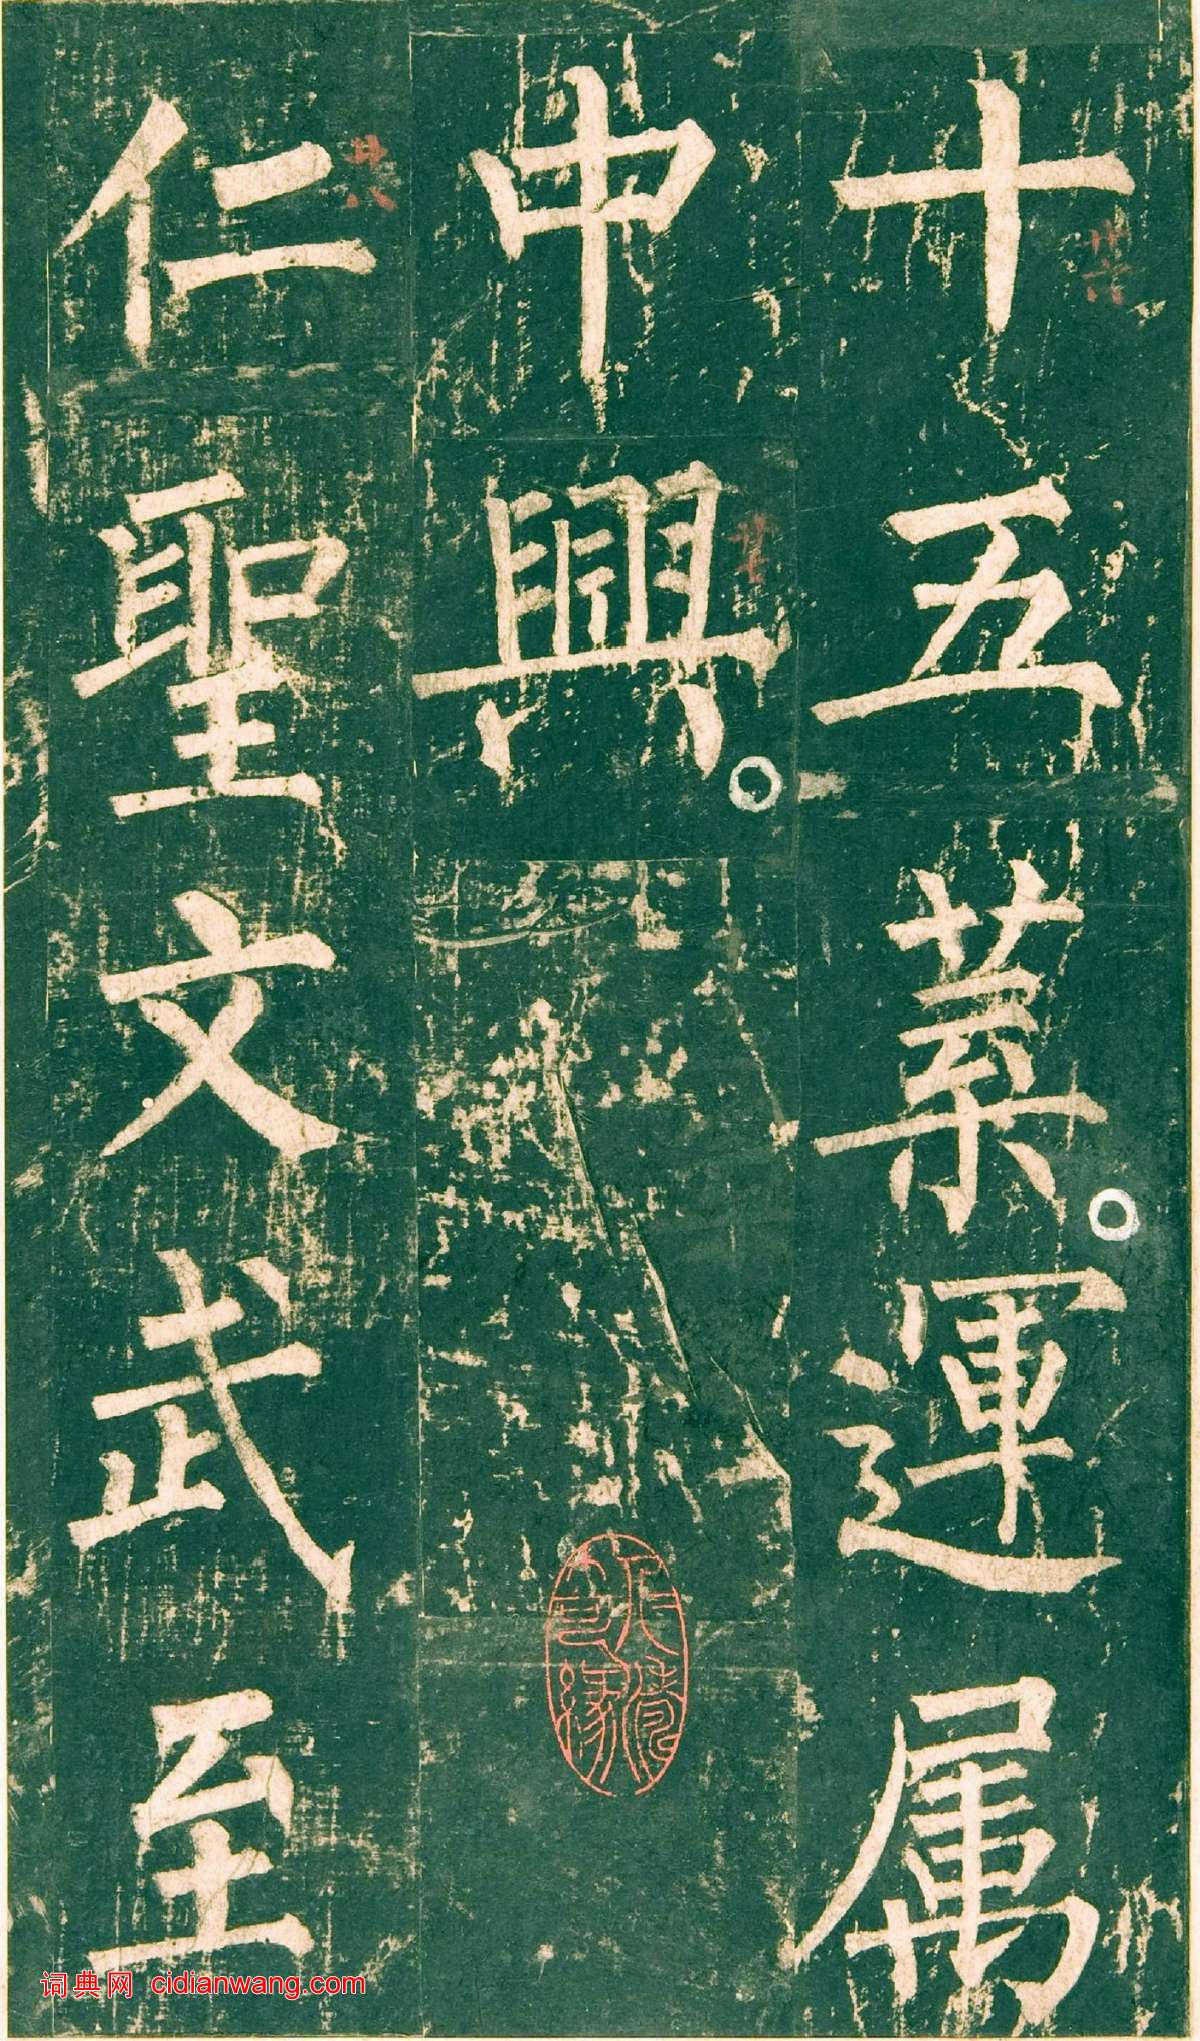 十五葉運属
中興
仁聖文武至
词典网 cidianwang.com